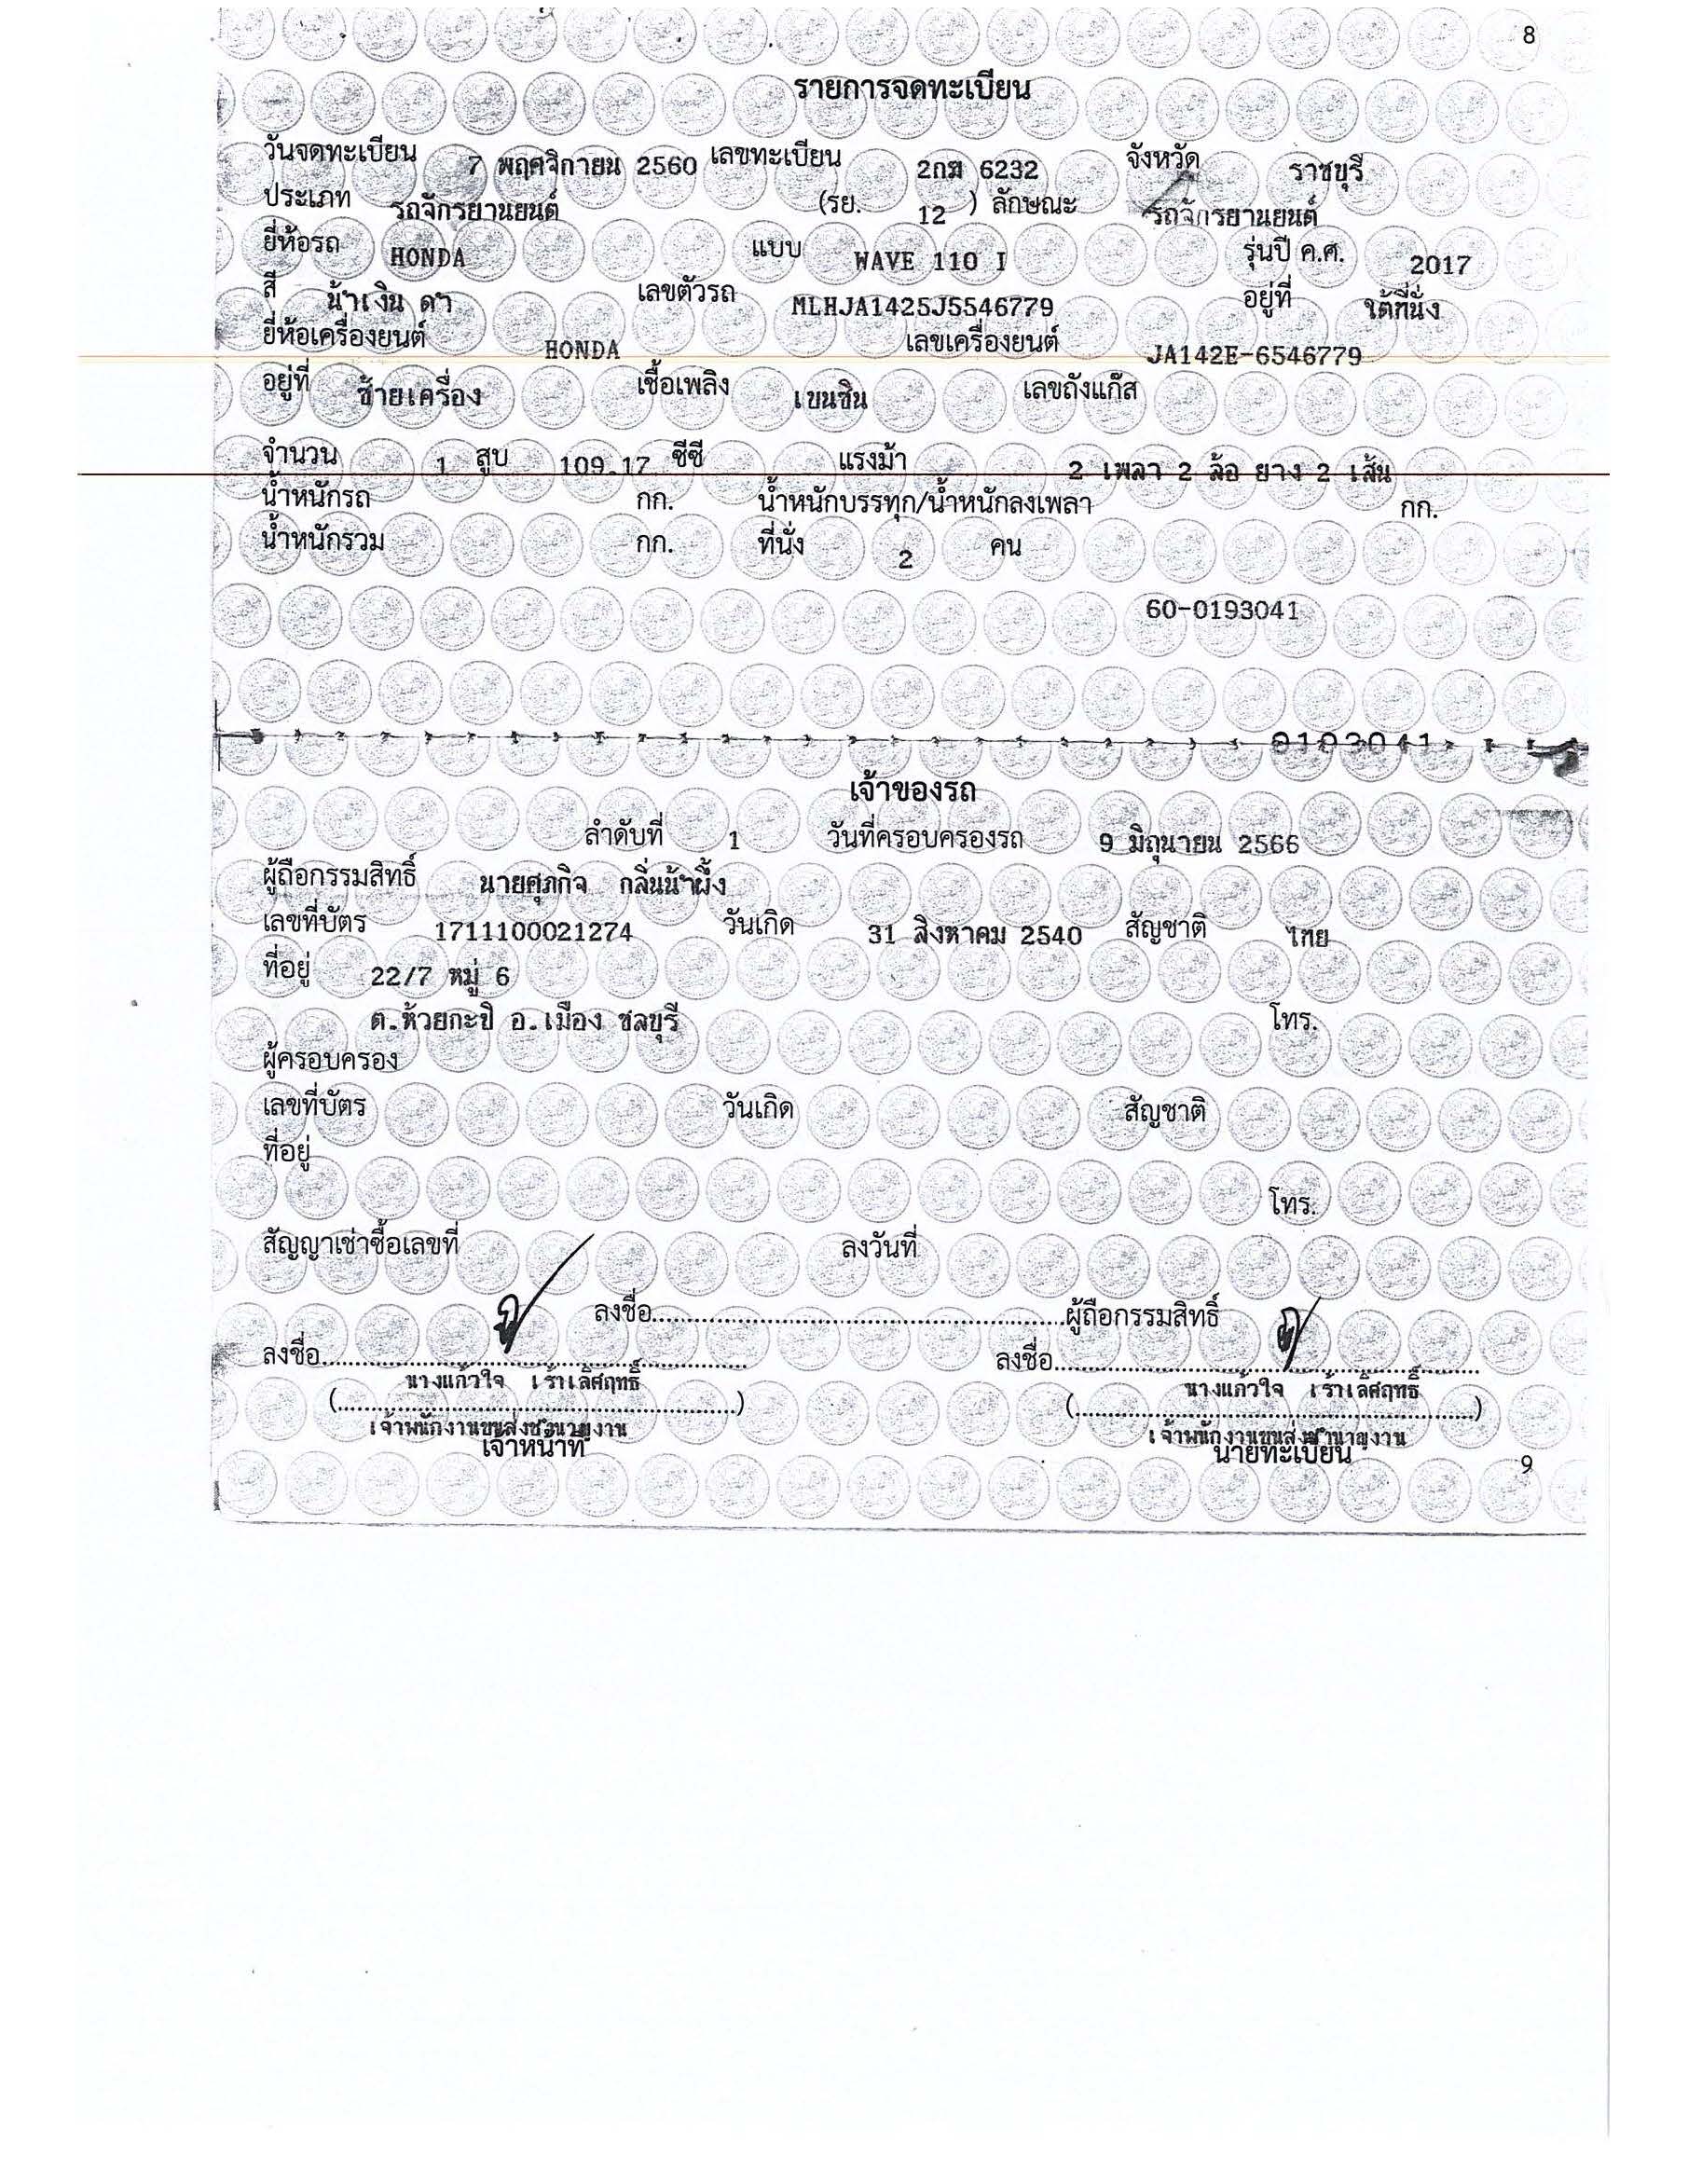 8
รายการจดทะเบียน
วันจดทะเบียน 7 พฤศจิกายน 2560 เลขทะเบียน 2กฆ 6232 จังหวัด ราชบุรี
ประเภท รถจักรยานยนต์ (รย. 12 ) ลักษณะ รถจักรยานยนต์
ยี่ห้อรถ HONDA แบบ WAVE 110 I รุ่นปี ค.ศ. 2017
สี น้ำเงิน ดำ เลขตัวรถ MLHJA1425J5546779 อยู่ที่ ใต้ที่นั่ง
ยี่ห้อเครื่องยนต์ HONDA เลขเครื่องยนต์ JA142E-6546779
อยู่ที่ ซ้ายเครื่อง เชื้อเพลิง เบนซิน เลขถังแก๊ส
จำนวน 1 สูบ 109.17 ซีซี แรงม้า 2 เพลา 2 ล้อ ยาง 2 เส้น
น้ำหนักรถ กก. น้ำหนักบรรทุก/น้ำหนักลงเพลา กก.
น้ำหนักรวม กก. ที่นั่ง 2 คน
60-0193041
0193041
เจ้าของรถ
ลำดับที่ 1 วันที่ครอบครองรถ 9 มิถุนายน 2566
ผู้ถือกรรมสิทธิ์ นายศุภกิจ กลิ่นน้ำผึ้ง
เลขที่บัตร 1711100021274 วันเกิด 31 สิงหาคม 2540 สัญชาติ ไทย
ที่อยู่ 22/7 หมู่ 6
ต.ห้วยกะปิ อ.เมือง ชลบุรี โทร.
ผู้ครอบครอง
เลขที่บัตร วันเกิด สัญชาติ
ที่อยู่
โทร.
สัญญาเช่าซื้อเลขที่ ลงวันที่
ลงชื่อ..........ผู้ถือกรรมสิทธิ์
ลงชื่อ.......... ลงชื่อ..........
นางแก้วใจ เร้าเลิศฤทธิ์ นางแก้วใจ เร้าเลิศฤทธิ์
(..........) (..........)
เจ้าพนักงานขนส่งชำนาญงาน เจ้าพนักงานขนส่งชำนาญงาน
เจ้าหน้าที่ นายทะเบียน
9